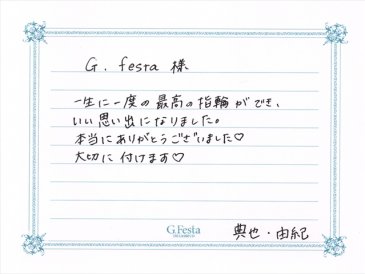 G. festa 様
一生に一度の最高の指輪ができ、
いい思い出になりました。
本当にありがとうございました♡
大切に付けます♡
G.Festa
典也・由紀